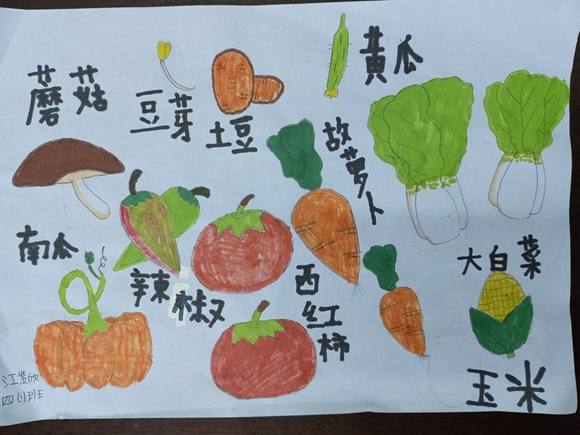 黄瓜
蘑菇
豆芽
土豆
故萝卜
南瓜
大白菜
辣椒
西红柿
玉米
江 欣
四(1)班